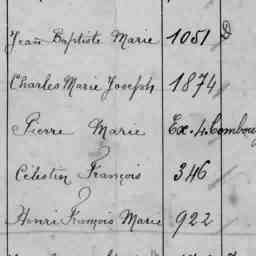 Jean Baptiste Marie 1051 D
Charles Marie Joseph 1874
Pierre Marie Ex. 4.
Célestin François 346
Henri François Marie 922